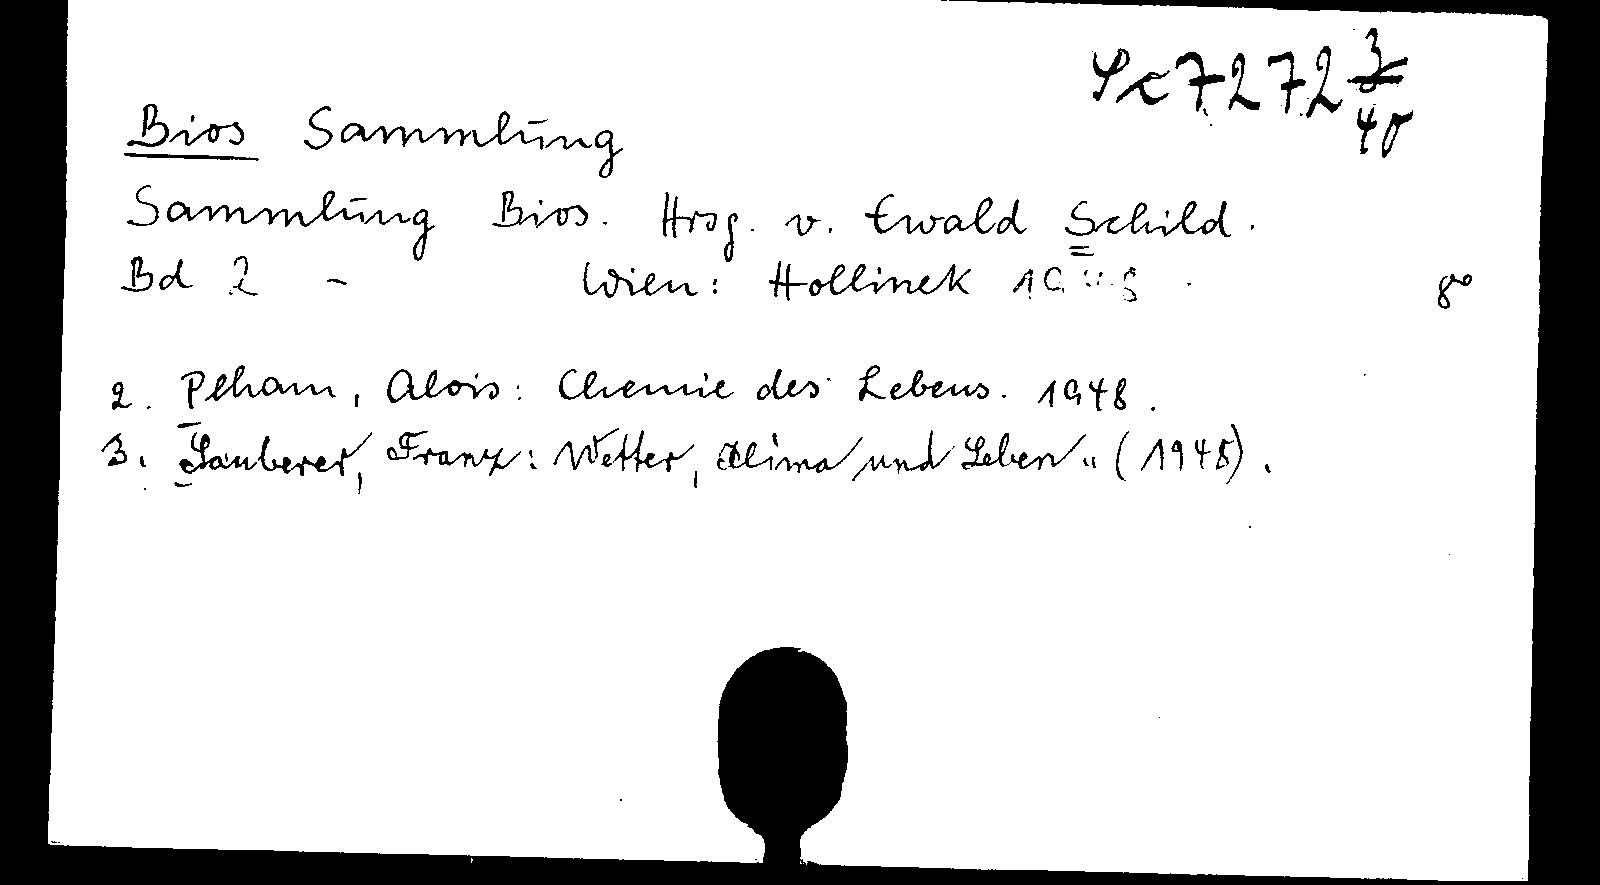 Sc 7272 3/40
Bios Sammlung
Sammlung Bios. Hrsg. v. Ewald Schild.
Bd 2 - Wien: Hollinek 8°
2. Peham, Alois: Chemie des Lebens. 1948.
3. Sauberer, Franz: Wetter, Klima und Leben. (1948).